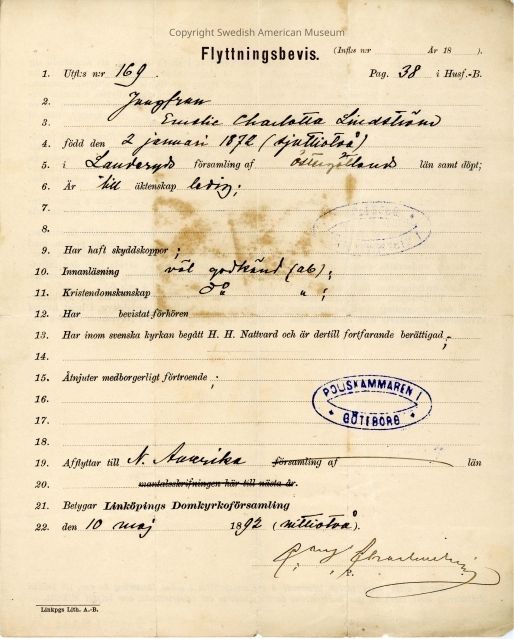 Copyright Swedish American Museum
Flyttningsbevis. (Infl:s n:r År 18 ).
1. Utfl:s n:r 169 Pag. 38 i Husf.-B.
2. Jungfrun
3. Emelie Charlotta Lindström
4. född den 2 januari 1872 (sjuttiotvå)
5. i Landeryds församling af Östergötland län samt döpt;
6. Är till äktenskap ledig;
7.
8.
9. Har haft skyddskoppor;
10. Innanläsning väl godkänd (ab);
11. Kristendomskunskap d:o " ;
12. Har bevistat förhören
13. Har inom svenska kyrkan begått H. H. Nattvard och är dertill fortfarande berättigad;
14.
15. Åtnjuter medborgerligt förtroende;
16.
POLISKAMMAREN I
GÖTEBORG
17.
18.
19. Afflyttar till N. Amerika församling af län
20. mantalsskrifningen här till nästa år.
21. Betygar Linköpings Domkyrkoförsamling
22. den 10 maj 1892 (nittiotvå).
Linkpgs Lith. A.-B.